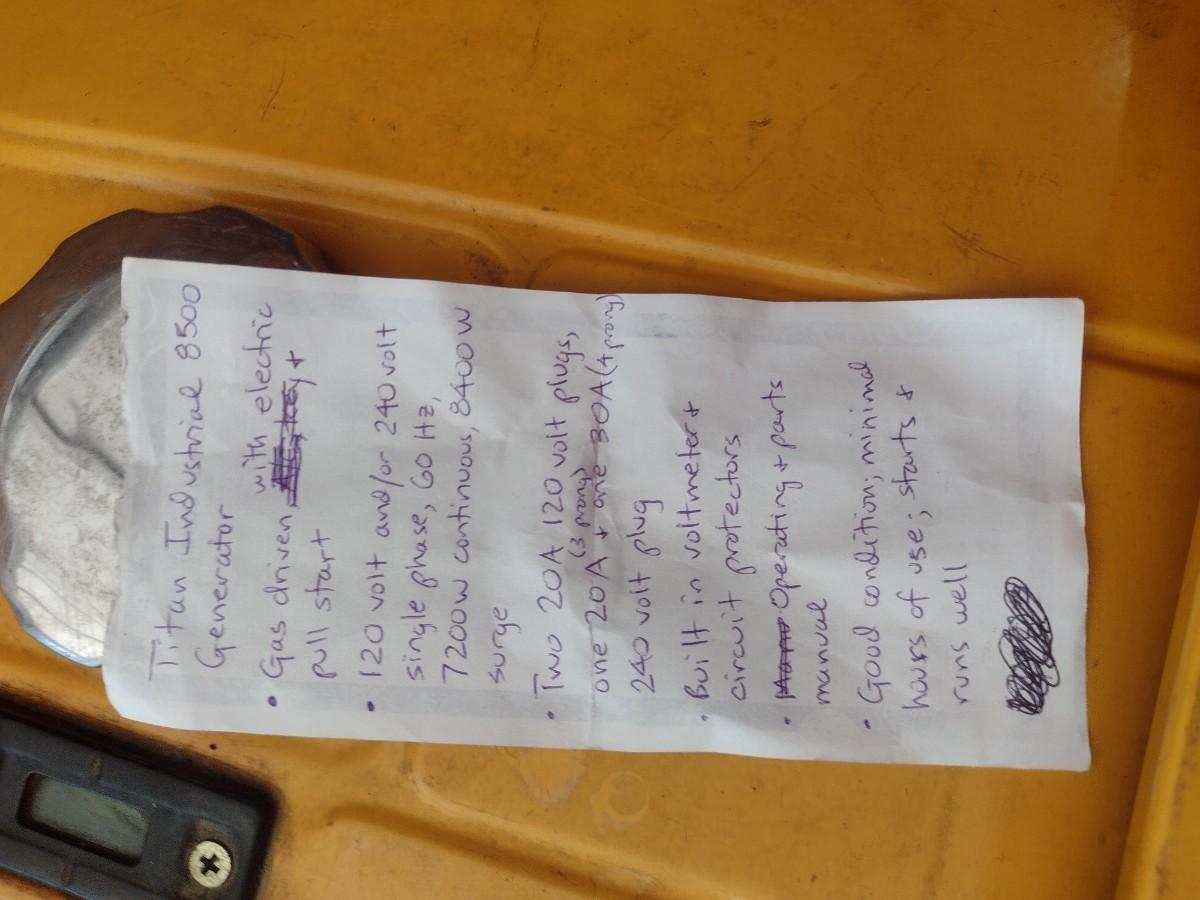 Titan Industrial 8500
Generator
• Gas driven with electric +
pull start
• 120 volt and/or 240 volt
single phase, 60 Hz,
7200w continuous, 8400w
surge
• Two 20A 120 volt plugs,
one 20A (3 prong) + one 30A (4 prong)
240 volt plug
• Built in voltmeter +
circuit protectors
• Operating + parts
manual
• Good condition; minimal
hours of use; starts +
runs well